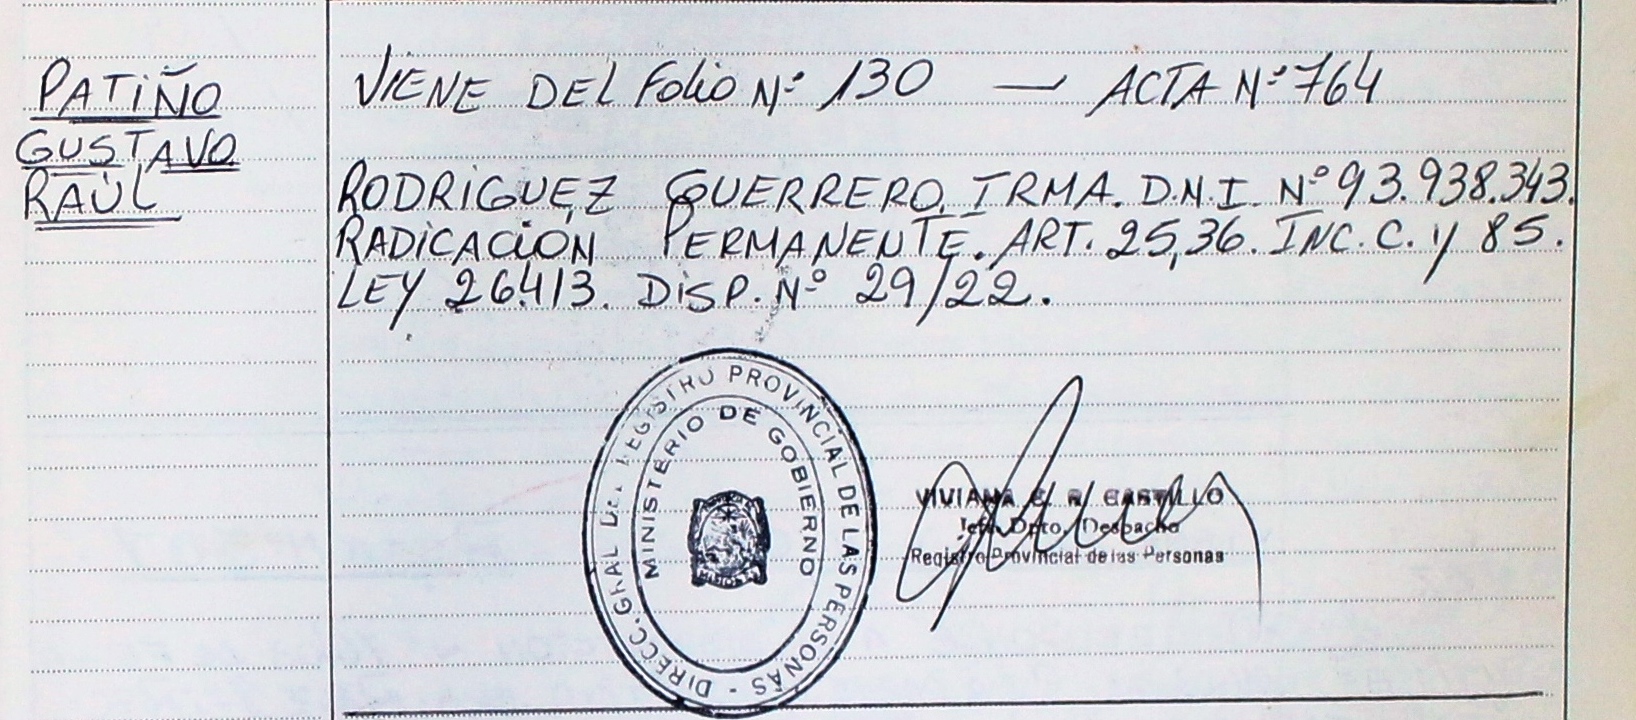 PATIÑO
GUSTAVO
RAÚL
VIENE DEL Folio Nº 130 — ACTA Nº 764
RODRIGUEZ GUERRERO, IRMA. D.N.I. Nº 93.938.343.
RADICACIÓN PERMANENTE. ART. 25,36. INC. C. y 85.
LEY 26413. DISP. Nº 29/22.
DIRECC. GRAL DEL REGISTRO PROVINCIAL DE LAS PERSONAS -
MINISTERIO DE GOBIERNO
VIVIANA C. R. CASTILLO
Jefa Dpto. Despacho
Registro Provincial de las Personas